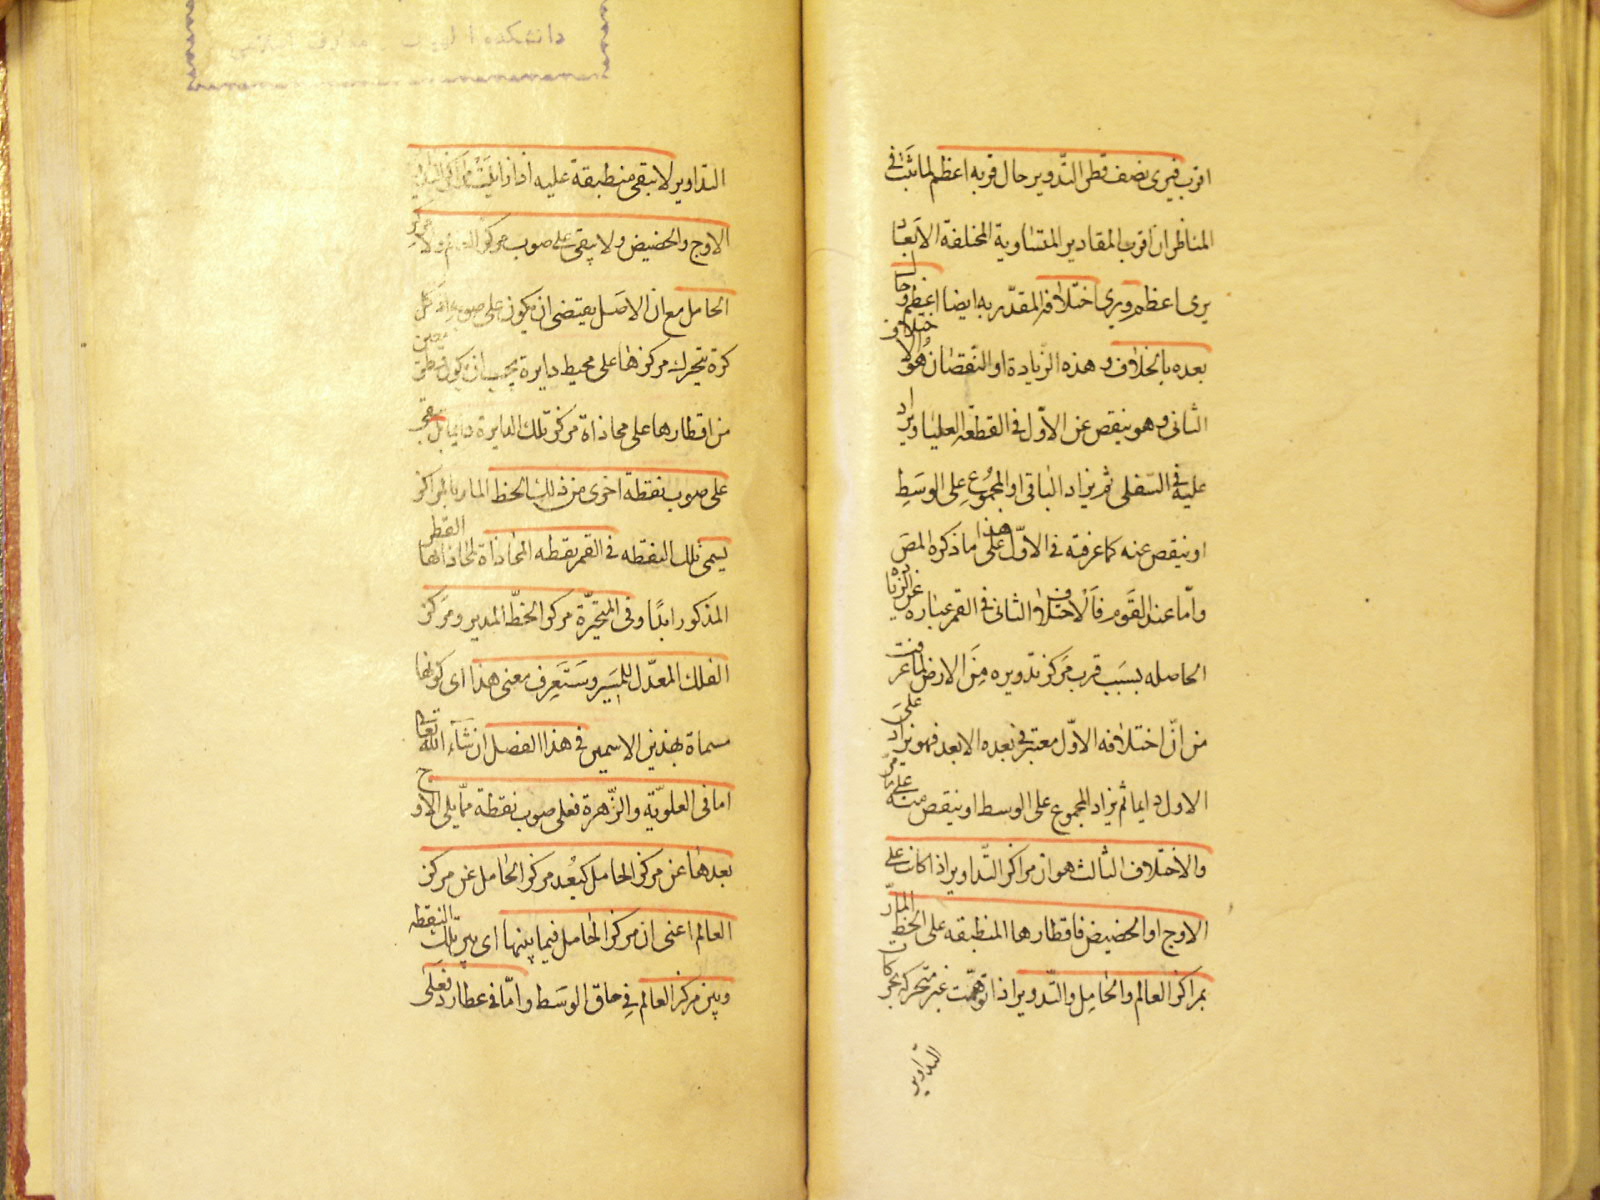 اقرب فيرى نصف قطر التدوير حال قربه اعظم لما ثبت في
المناظر ان اقرب المقادير المتساوية المختلفة الابعاد
يرى اعظم ويرى اختلاف المقدر به ايضا اعظم وحال
بعده بالخلاف وهذه الزيادة او النقصان هو الاختلاف
الثاني وهو ينقص عن الاول في القطعة العليا ويزاد
عليه في السفلى ثم يزاد الباقي او المجموع على الوسط
او ينقص عنه كما عرفته في الاول هذا على ما ذكره المص
واما عند القوم فالاختلاف الثاني في القمر عبارة عن الزيادة
الحاصله بسبب قرب مركز تدويره من الارض لما عرفت
من ان اختلافه الاول معتبر في بعده الابعد فهو يزاد على
الاول دايما ثم يزاد المجموع على الوسط او ينقص منه على ما مر
والاختلاف الثالث هو ان مراكز التداوير اذا كانت على
الاوج او الحضيض فاقطارها المنطبقه على الخط المار
بمراكز العالم والحامل والتدوير اذا توهمت غير متحركة بحركات
التداوير
التداوير لا تبقى منطبقة عليه اذا زايلت مراكز التداوير
الاوج والحضيض ولا يبقى على صوب مركز العالم ولا مركز
الحامل مع ان الاصل يقتضى ان يكون على صوبه اذ كل
كرة يتحرك مركزها على محيط دايرة يجب ان يكون قطر معين
من اقطارها على محاذاة مركز تلك الدايرة دايما بل تبقى
على صوب نقطة اخرى من ذلك الخط المار بالمراكز
يسمى تلك النقطه في القمر نقطه المحاذاة لمحاذاتها القطر
المذكور ابدا وفي المتحيرة مركز الخط المدير ومركز
الفلك المعدل للمسير وستعرف معنى هذا اى كونها
مسماة بهذين الاسمين في هذا الفصل ان شاء الله تعالى
اما في العلوية والزهرة فعلى صوب نقطة مما يلى الاوج
بعدها عن مركز الحامل كبعد مركز الحامل عن مركز
العالم اعنى ان مركز الحامل فيما بينهما اى بين تلك النقطه
وبين مركز العالم في حاق الوسط واما في عطارد فعلى